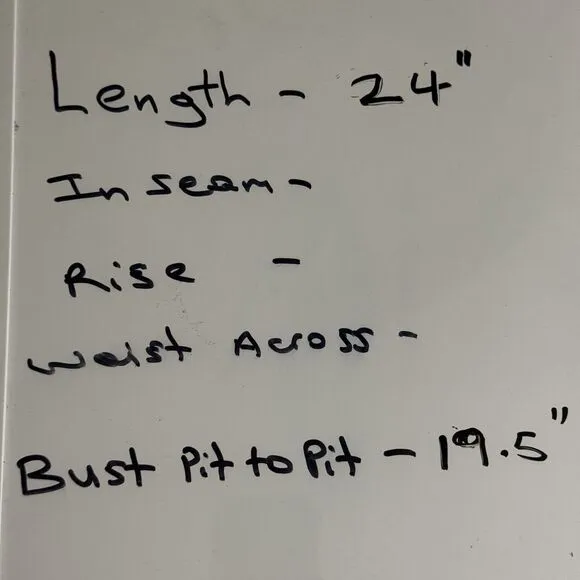 Length - 24"
Inseam -
Rise -
Waist Across -
Bust Pit to Pit - 19.5"